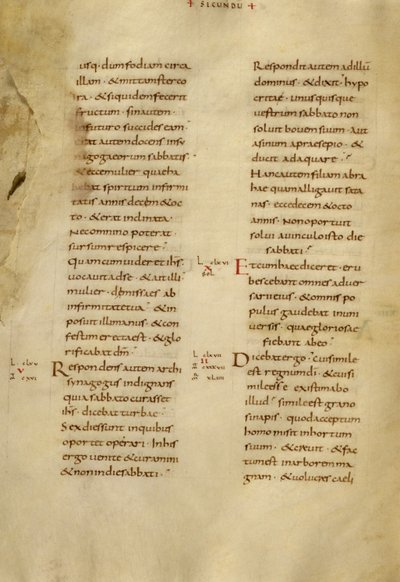 + SECUNDU +
usq. dum fodiam circa
illam. & mittam sterco
ra. & siquidem fecerit
fructum. sin autem
infuturo succides eam
erat autem docens in sy
nagoga eorum sabbatis
& ecce mulier quae ha
bebat spiritum infirmi
tatis annis decem & oc
to. & erat inclinata
Nec omnino poterat
sursum respicere
quam cum videret ihs.
vocavit ad se. & ait illi
mulier. dimissa es ab
infirmitate tua. & in
posuit illi manus. & con
festim erecta est. & glo
rificabat dm
L clxv
v
cxvi
Respondens autem archi
synagogus indignans
quia sabbato curasset
ihs. dicebat turbae
Sex dies sunt inquibus
oportet operari. In his
ergo venite & curamini
& non in die sabbati
Respondit autem ad illu
dominus. & dixit. hypo
critae. unusquisque
vestrum sabbato non
solvit bovem suum. aut
asinum a praesepio. &
ducit adaquare
Hanc autem filiam abra
hae quam alligavit sata
nas. ecce decem & octo
annis. Non oportuit
solvi a vinculo isto die
sabbati
L clxvi
x
sol.
Et cum haec diceret. eru
bescebant omnes adver
sarii eius. & omnis po
pulus gaudebat in uni
versis. quae gloriosae
fiebant ab eo
L clxvii
II
cxxxvii
xliiii
Dicebat ergo. cui simile
est regnum di. & cui si
mile esse existimabo
illud. simile est grano
sinapis. quod acceptum
homo misit in hortum
suum. & crevit. & fac
tum est in arborem ma
gnam. & volucres caeli